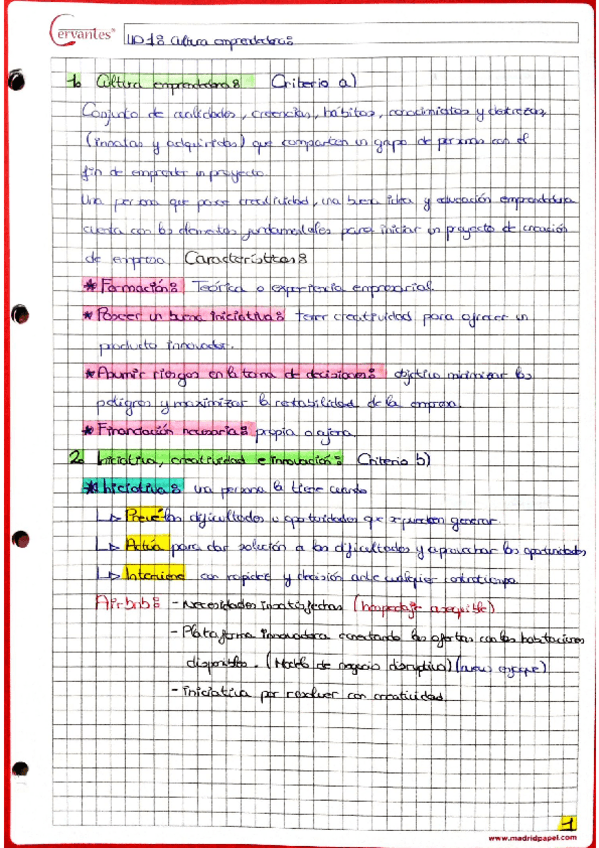 Cervantes® UD1: Cultura emprendedora:
1. Cultura emprendedora: Criterio a)
Conjunto de cualidades, creencias, hábitos, conocimientos y destrezas
(innatas y adquiridas) que comparten un grupo de personas con el
fin de emprender un proyecto
Una persona que posee creatividad, una buena idea y educación emprendedora
cuenta con los elementos fundamentales para iniciar un proyecto de creación
de empresa. Características:
* Formación: Teórica o experiencia empresarial.
* Poseer un buena iniciativa: tener creatividad para ofrecer un
producto innovador.
* Asumir riesgos en la toma de decisiones: objetivo minimizar los
peligros y maximizar la rentabilidad de la empresa.
* Financiación necesaria: propia o ajena.
2. Iniciativa, creatividad e innovación: Criterio b)
* Iniciativa: una persona la tiene cuando
↳ Prevé las dificultades u oportunidades que se puedan generar
↳ Actúa para dar solución a las dificultades y aprovechar las oportunidades
↳ Interviene con rapidez y decisión ante cualquier contratiempo
Airbnb: - Necesidades insatisfechas (hospedaje asequible)
- Plataforma innovadora conectando las ofertas con las habitaciones
disponibles. (Modelo de negocio disruptivo) (nuevo enfoque)
- iniciativa por resolver con creatividad.
1
www.madridpapel.com